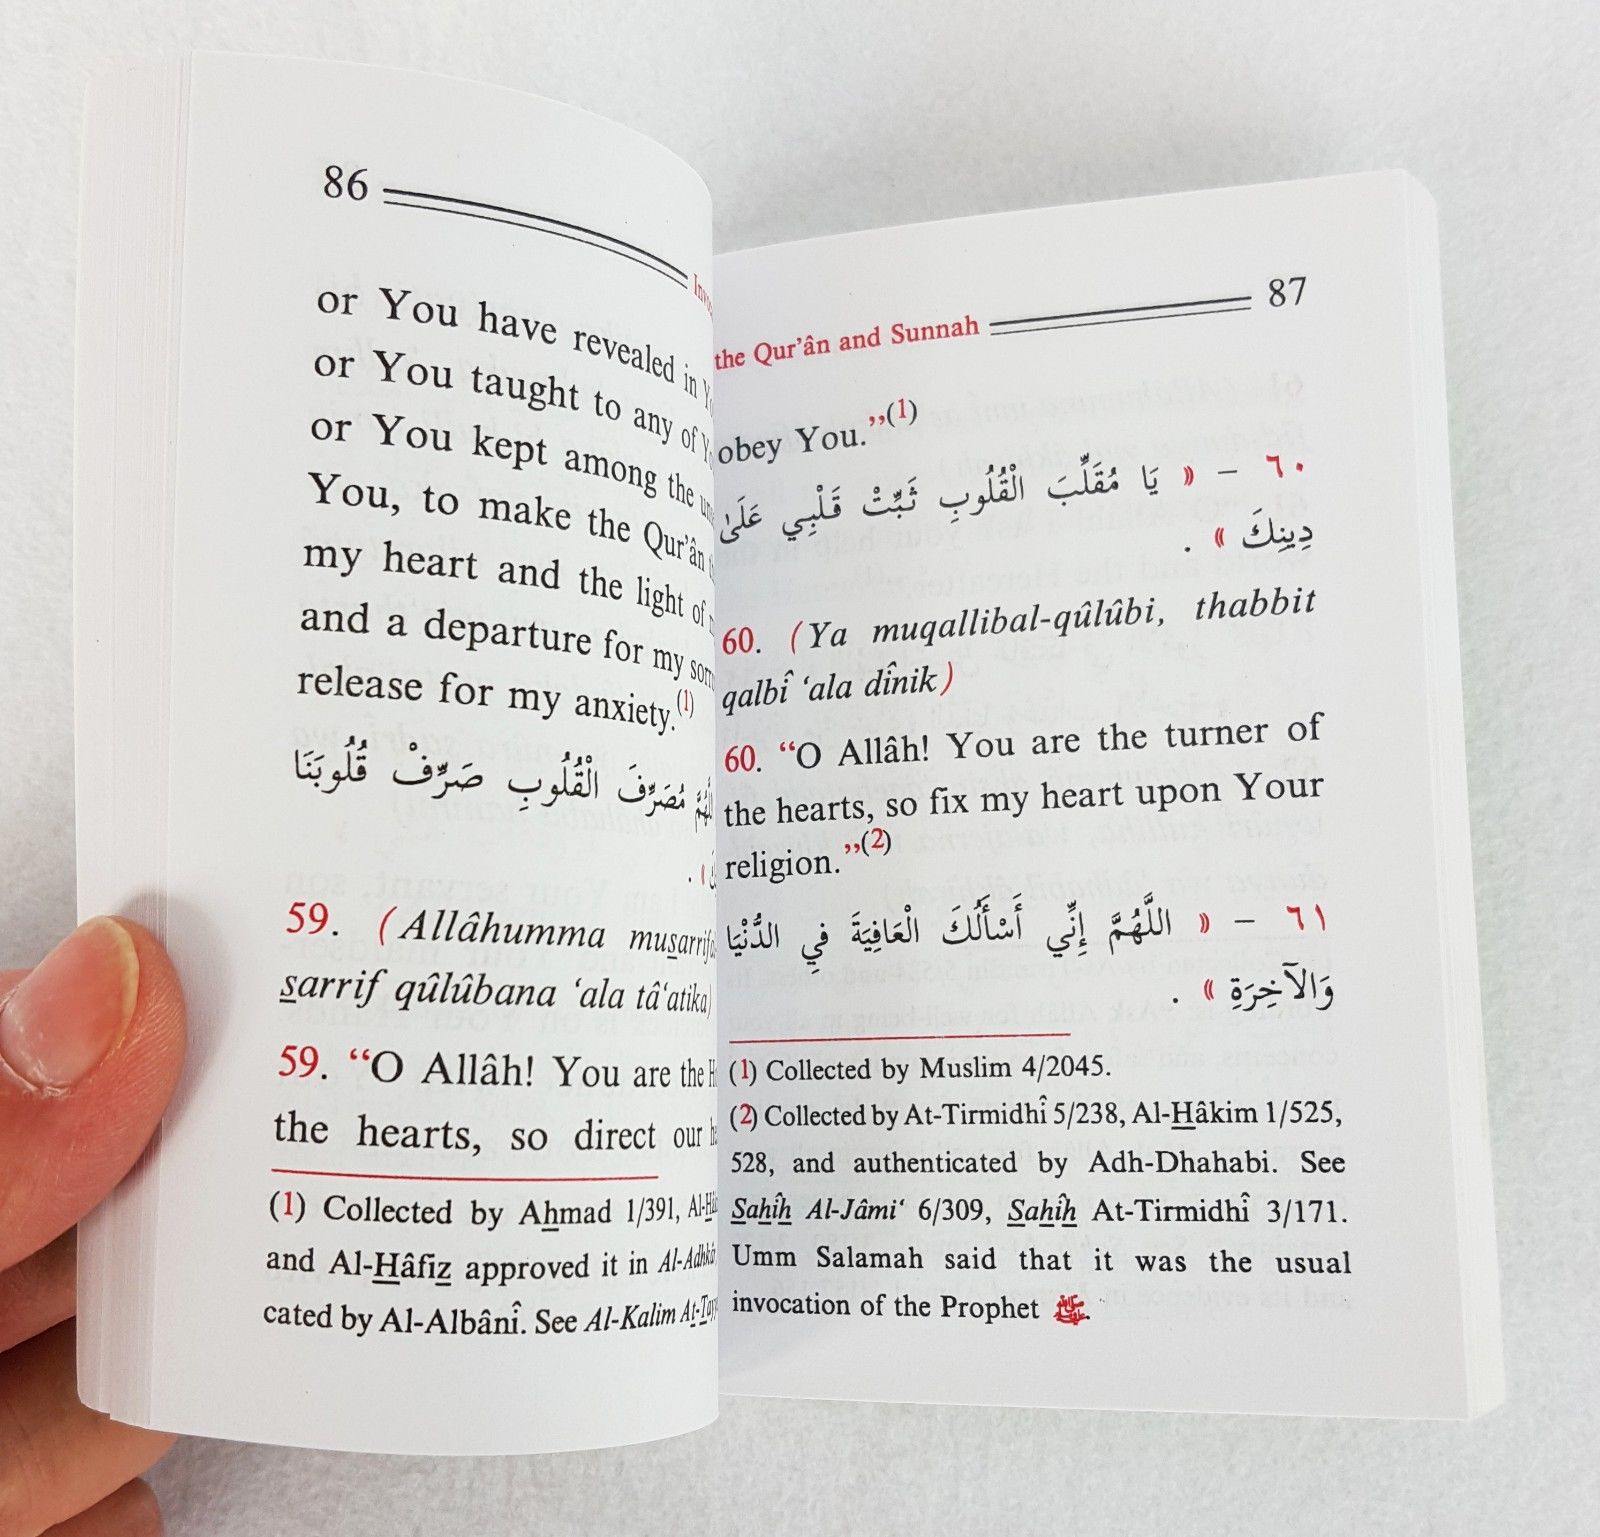 86
or You have revealed in
or You taught to any of
or You kept among the
You, to make the Qur’ân
my heart and the light of
and a departure for my
release for my anxiety.(1)
مُصَرِّفَ الْقُلُوبِ صَرِّفْ قُلُوبَنَا
59. (Allâhumma
sarrif qûlûbana ‘ala tâ‘atika)
59. “O Allâh! You are the
the hearts, so direct our
(1) Collected by Ahmad 1/391,
and Al-Hâfiz approved it in
cated by Al-Albânî. See Al-Kalim
the Qur’ân and Sunnah 87
obey You.”(1)
٦٠ – « يَا مُقَلِّبَ الْقُلُوبِ ثَبِّتْ قَلْبِي عَلَىٰ
دِينِكَ » .
60. (Ya muqallibal-qûlûbi, thabbit
qalbî ‘ala dînik)
60. “O Allâh! You are the turner of
the hearts, so fix my heart upon Your
religion.”(2)
٦١ – « اللَّهُمَّ إِنِّي أَسْأَلُكَ الْعَافِيَةَ فِي الدُّنْيَا
وَالآخِرَةِ » .
(1) Collected by Muslim 4/2045.
(2) Collected by At-Tirmidhî 5/238, Al-Hâkim 1/525,
528, and authenticated by Adh-Dhahabi. See
Sahîh Al-Jâmi‘ 6/309, Sahîh At-Tirmidhî 3/171.
Umm Salamah said that it was the usual
invocation of the Prophet ﷺ.